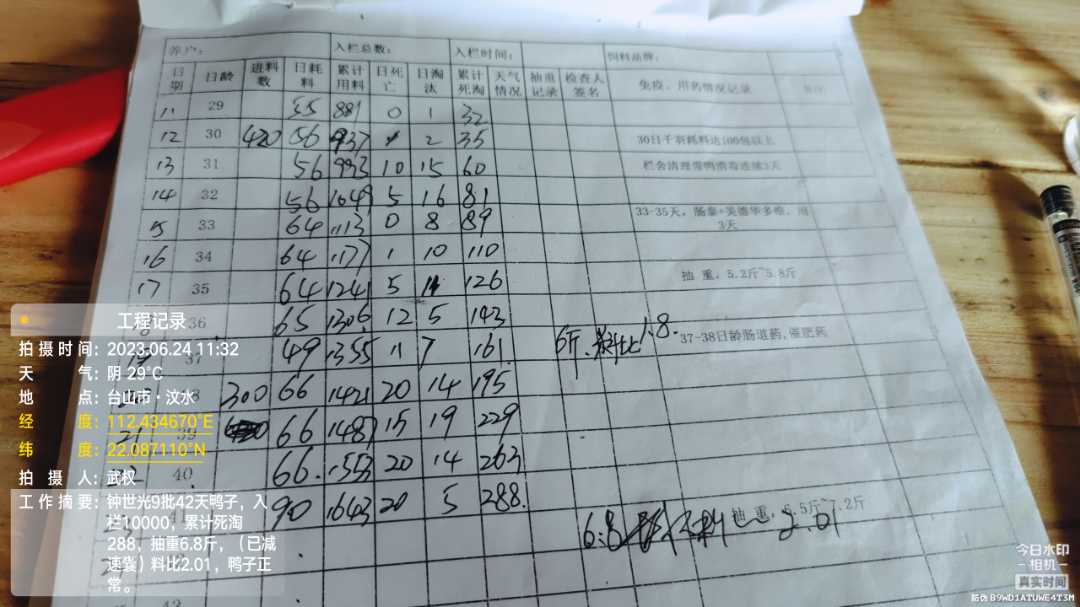 养户: 入栏总数: 入栏时间: 饲料品牌:
日期 日龄 进料数 日耗料 累计用料 日死亡 日淘汰 累计死淘 天气情况 抽重记录 检查人签名 免疫、用药情况记录
11 29 55 881 0 1 32
12 30 420 56 937 1 2 35 30日千羽耗料达100包以上
13 31 56 993 10 15 60 栏舍清理带鸭消毒连续3天
14 32 56 1049 5 16 81
15 33 64 1113 0 8 89 33-35天, 肠泰+美德华多维, 用3天
16 34 64 1177 1 10 110
17 35 64 1241 5 11 126 抽重, 5.2斤~5.8斤
36 65 1306 12 5 143
19 37 49 1355 11 7 161. 6斤. 料比1.8. 37-38日龄肠道药, 催肥药
38 300 66 1421 20 14 195
21 39 66 1487 15 19 229
22 40 66. 1553 20 14 263
90 1643 20 5 288. 抽重, 6.5斤~7.2斤
6.8 2.01
43
工程记录
拍摄时间: 2023.06.24 11:32
天气: 阴 29°C
地点: 台山市·汶水
经度: 112.434670°E
纬度: 22.087110°N
拍摄人: 武权
工作摘要: 钟世光9批42天鸭子, 入
栏10000, 累计死淘
288, 抽重6.8斤, (已减
速袋) 料比2.01, 鸭子正
常。
今日水印
-相机-
真实时间
防伪 B9WD1ATUWE4T3M